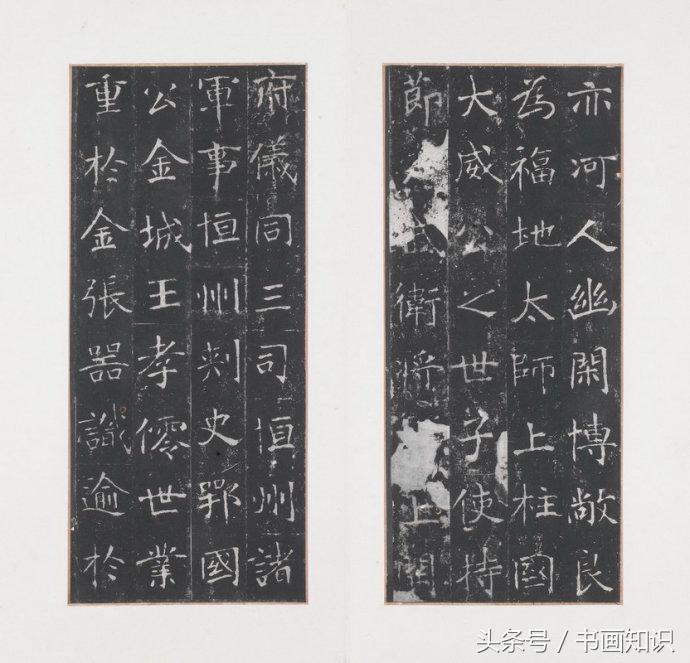 亦河人幽閑博敞良
為福地太師上柱國
大威公之世子使持
節武衛將上開
府儀同三司恒州諸
軍事恒州刺史鄂國
公金城王孝僊世業
重於金張器識逾於
头条号 / 书画知识